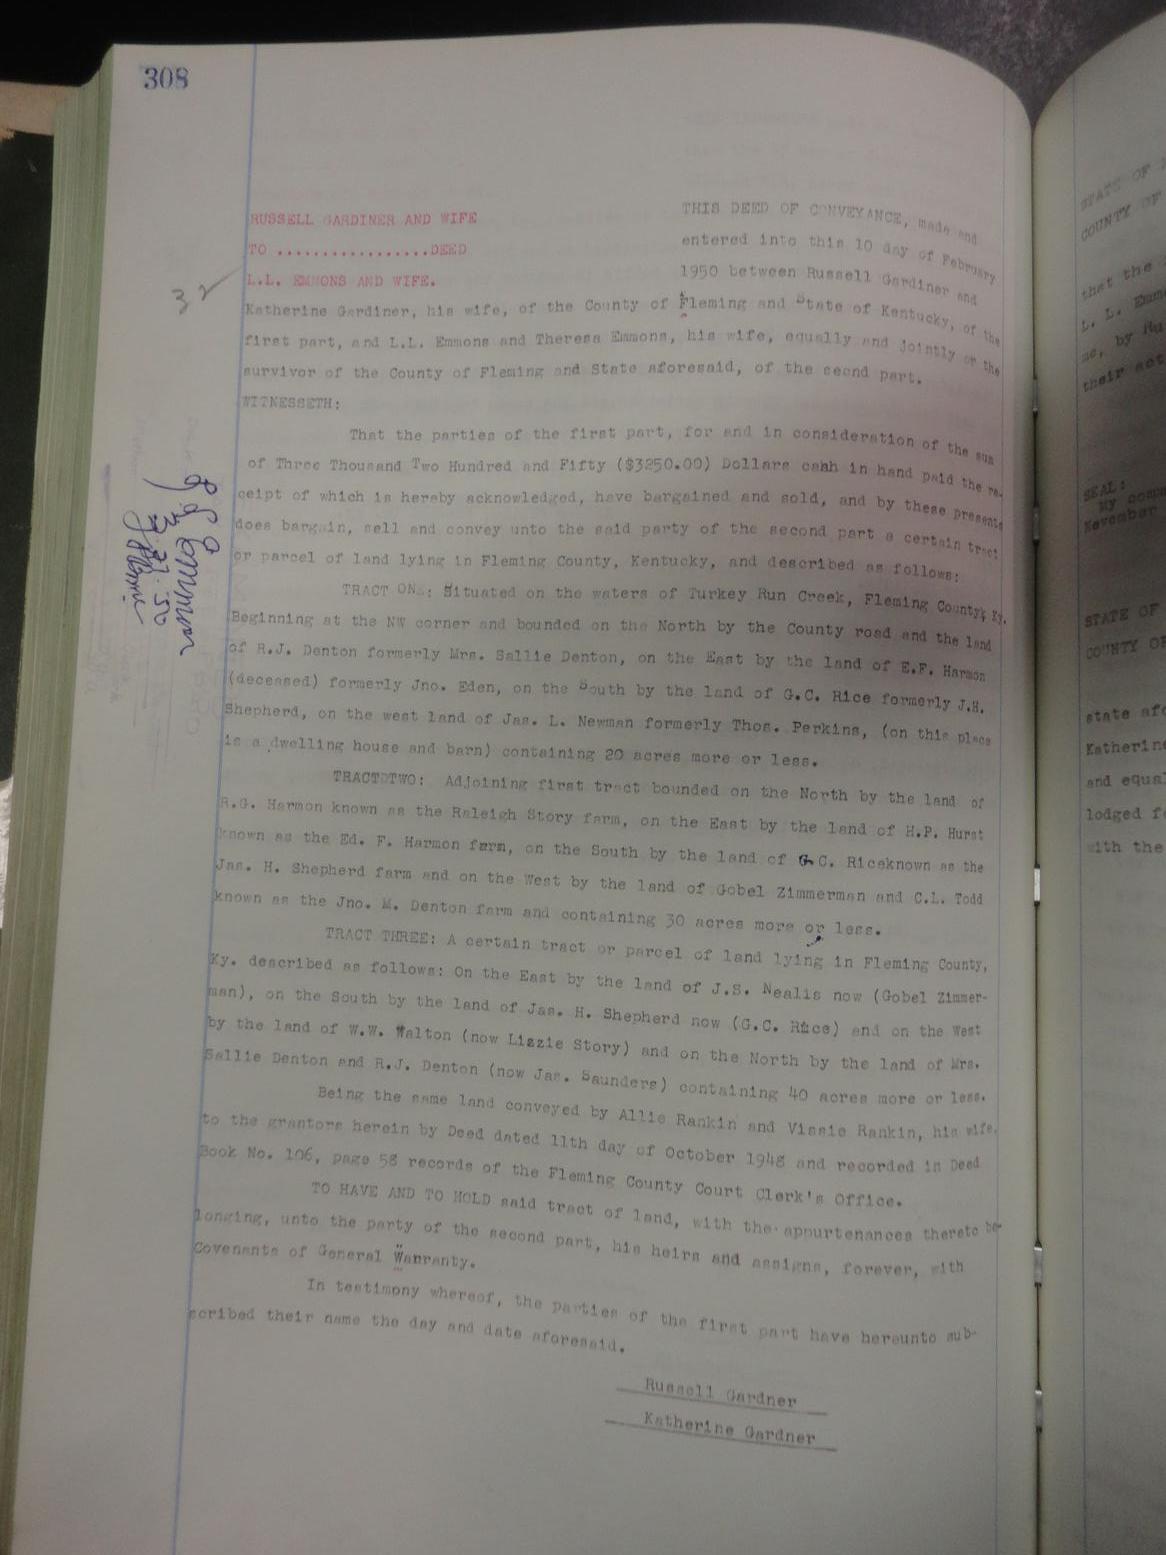 308
RUSSELL GARDINER AND WIFE
TO .................DEED
L.L. EMMONS AND WIFE.
THIS DEED OF CONVEYANCE, made and
entered into this 10 day of February
1950 between Russell Gardiner and
32
Katherine Gardiner, his wife, of the County of Fleming and State of Kentucky, of the
first part, and L.L. Emmons and Theresa Emmons, his wife, equally and jointly or the
survivor of the County of Fleming and State aforesaid, of the secnd part.
WITNESSETH:
That the parties of the first part, for and in consideration of the sum
of Three Thousand Two Hundred and Fifty ($3250.00) Dollars cahh in hand paid the re-
ceipt of which is hereby acknowledged, have bargained and sold, and by these presents
does bargain, sell and convey unto the said party of the second part a certain tract
or parcel of land lying in Fleming County, Kentucky, and described as follows:
TRACT ONE: Situated on the waters of Turkey Run Creek, Fleming County, Ky.
Beginning at the NW corner and bounded on the North by the County road and the land
of R.J. Denton formerly Mrs. Sallie Denton, on the East by the land of E.F. Harmon
(deceased) formerly Jno. Eden, on the South by the land of G.C. Rice formerly J.H.
Shepherd, on the west land of Jas. L. Newman formerly Thos. Perkins, (on this place
is a dwelling house and barn) containing 20 acres more or less.
TRACT TWO: Adjoining first tract bounded on the North by the land of
R.G. Harmon known as the Raleigh Story farm, on the East by the land of H.P. Hurst
known as the Ed. F. Harmon farm, on the South by the land of G C. Riceknown as the
Jas. H. Shepherd farm and on the West by the land of Gobel Zimmerman and C.L. Todd
known as the Jno. M. Denton farm and containing 30 acres more or less.
TRACT THREE: A certain tract or parcel of land lying in Fleming County,
Ky. described as follows: On the East by the land of J.S. Nealis now (Gobel Zimmer-
man), on the South by the land of Jas. H. Shepherd now (G.C. Rice) and on the West
by the land of W.W. Walton (now Lizzie Story) and on the North by the land of Mrs.
Sallie Denton and R.J. Denton (now Jas. Saunders) containing 40 acres more or less.
Being the same land conveyed by Allie Rankin and Vissie Rankin, his wife,
to the grantors herein by Deed dated 11th day of October 1948 and recorded in Deed
Book No. 106, page 58 records of the Fleming County Court Clerk's Office.
TO HAVE AND TO HOLD said tract of land, with the appurtenances thereto be-
longing, unto the party of the second part, his heirs and assigns, forever, with
Covenants of General Warranty.
In testimony whereof, the parties of the first part have hereunto sub-
scribed their name the day and date aforesaid.
Russell Gardner
Katherine Gardner
Emmons
STATE OF
COUNTY OF
that the
L. L. Emm
me, by Ru
their act
SEAL:
My comm
November
STATE OF
COUNTY OF
state afo
Katherine
and equal
lodged fo
with the